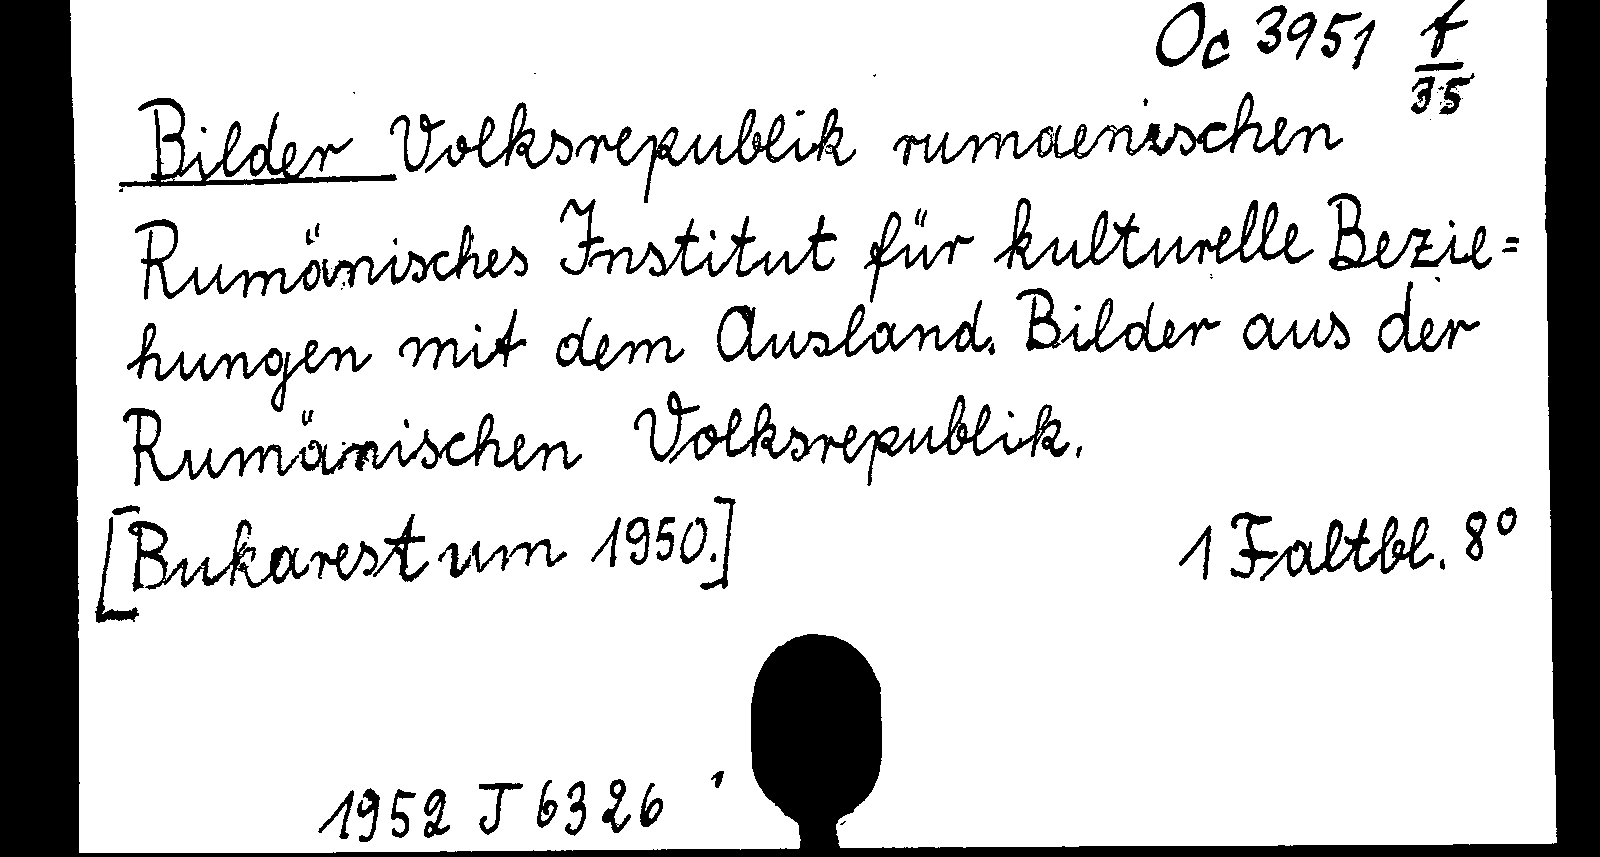 Oc 3951 f/35
Bilder Volksrepublik rumaenischen
Rumänisches Institut für kulturelle Bezie=
hungen mit dem Ausland. Bilder aus der
Rumänischen Volksrepublik.
[Bukarest um 1950.] 1 Faltbl. 8°
1952 J 6326